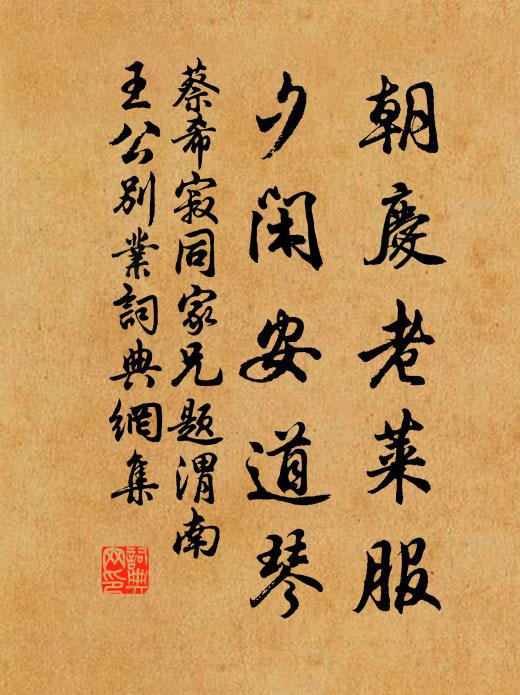 朝慶老萊服
夕閑安道琴
蔡希寂同家兄題渭南
王公別業詞典網集
詞典网印